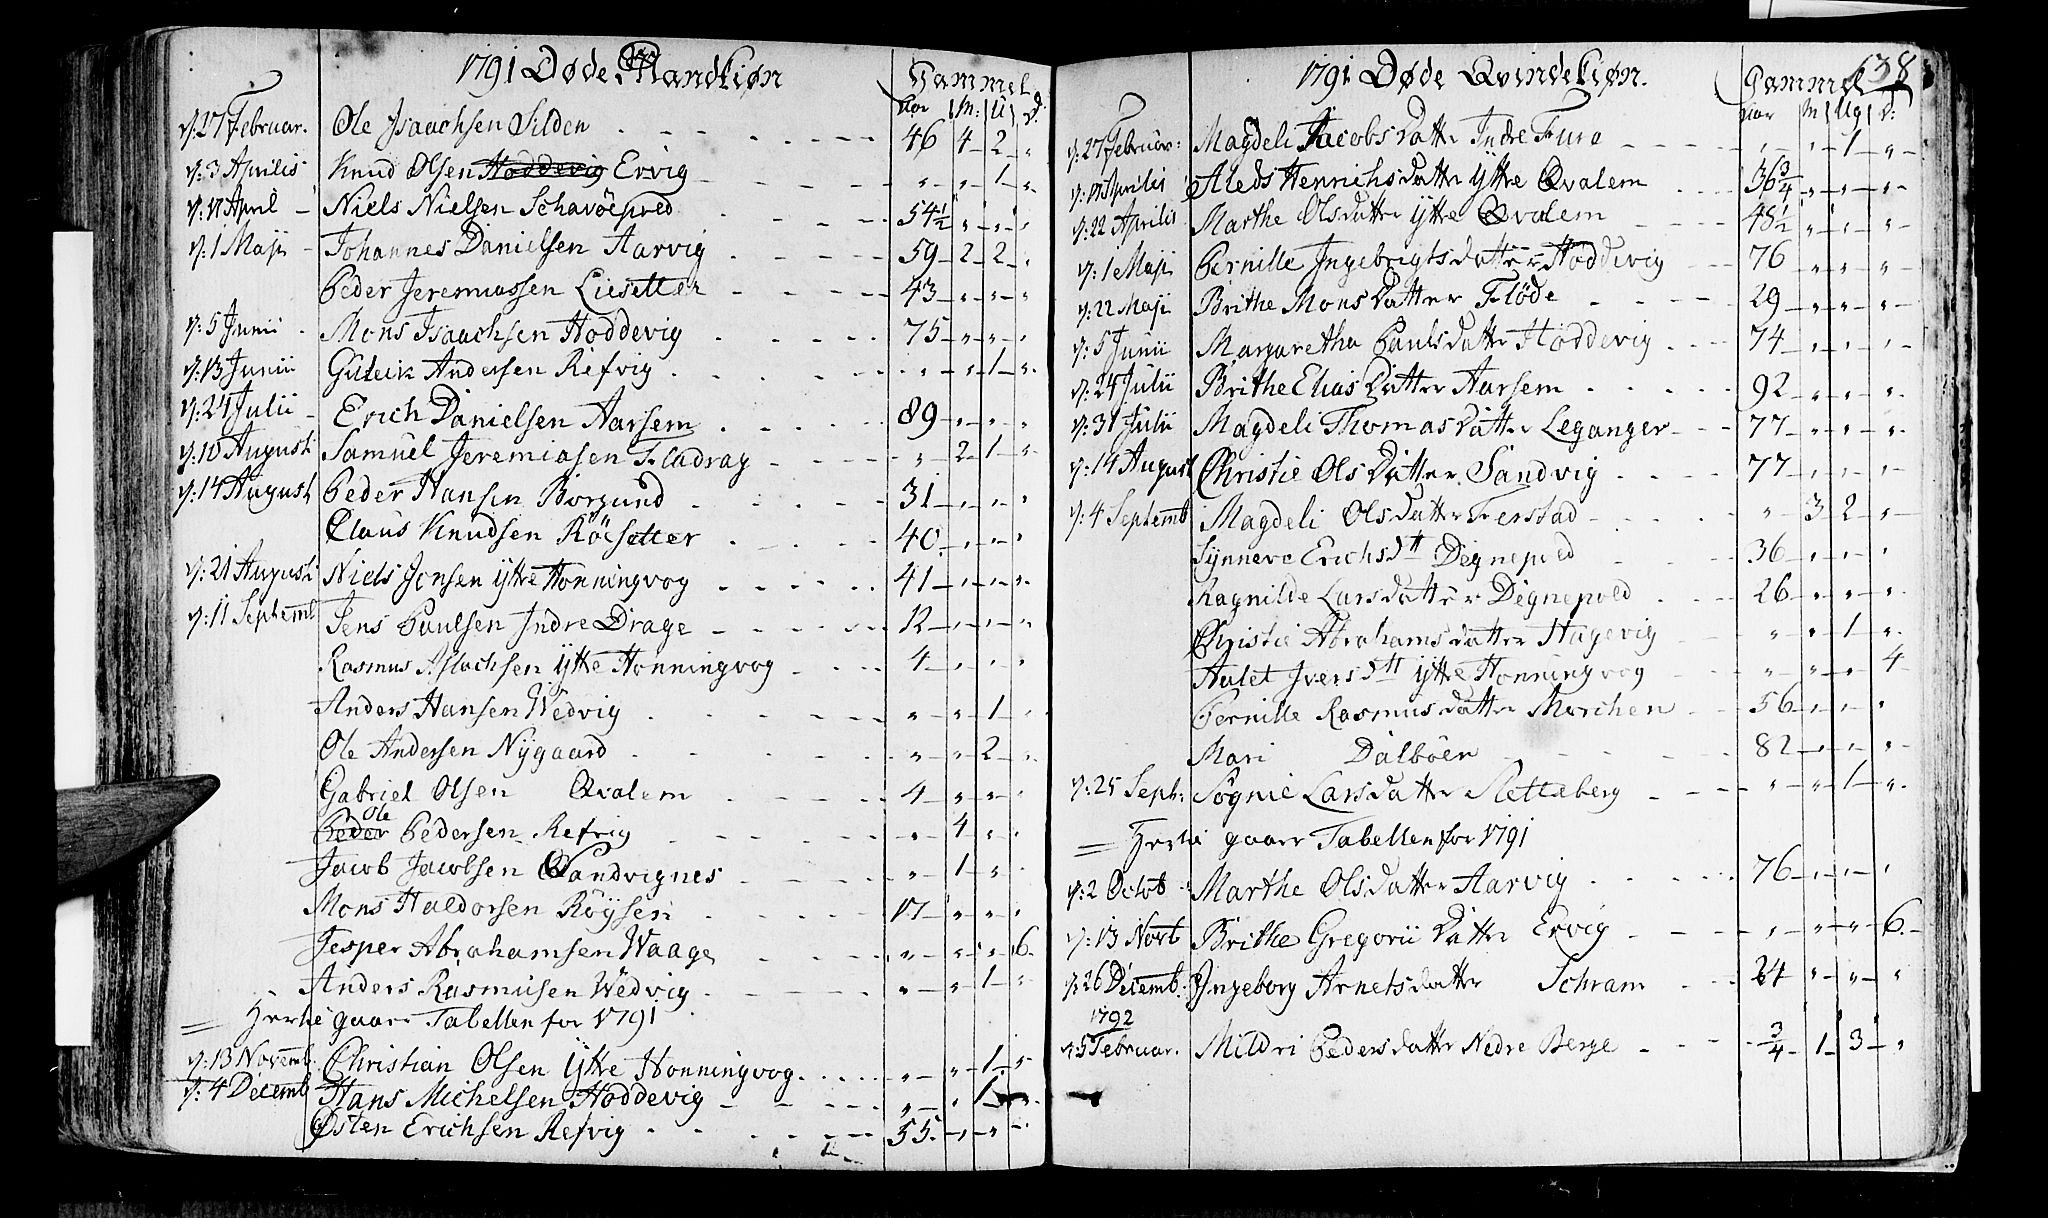 1791 Døde Mandkiøn
Gammel
Aar M: U: D:
d: 27 Februar. Ole Isaachsen Silden 46 4 2 "
d: 3 Aprilis Knud Olsen Hoddevig Ervig " " 1 "
d: 17 April Niels Nielsen Schavöepold 54 1/2 " " "
d: 1 Maji Johannes Danielsen Aarvig 59 2 2 "
Peder Jeremiassen Liesetter 43 " " "
d: 5 Junii Mons Isaachsen Hoddevig 75 " " "
d: 13 Junii Guleik Andersen Refvig " " 1 "
d: 24 Julii Erich Danielsen Aarsem 89 " " "
d: 10 Augusti Samuel Jeremiasen Fladrag " 2 1 "
d: 14 Augusti Peder Hansen Borgund 31 " " "
Claus Knudsen Röesetter 40 " " "
d: 21 Augusti Niels Jonsen Ytte Honningvog 41 " " "
d: 11 Septembl Jens Paulsen Indre Drage 12 " " "
Rasmus Aslachsen Ytte Honningvog 4 " " "
Anders Hansen Wedvig " " 1 "
Ole Andersen Nygaard " " 2 "
Gabriel Olsen Qvalem 4 " " "
Ole
Peder Pedersen Refvig " 4 " "
Jacob Jacobsen Sandvignes " 1 " "
Mons Haldorsen Röysen 17 " " "
Jesper Abrahamsen Waage " " " 6
Anders Rasmusen Wedvig " " 1 "
= Herhe gaaer Tabellen for 1791
d: 13 Novemb. Christian Olsen Ytte Honningvog " " 1 "
d: 4 Decemb Hans Michelsen Hoddevig " " 1 "
Østen Erichsen Refvig 55 " " "
1791 Døde Qvindekiøn.
Gammel 138
Aar M Ug d:
d: 27 Februar: Magdeli Jacobs Datter Indre Fure " " 1 "
Aprilis Aleds Henrichsdatter Ytte Qvalem 36 3/4 " " "
d: 22 Aprilis Marthe Olsdatter Ytte Qvalem 48 1/2 " " "
d: 1 Maji Pernille Ingebrigtsdatter Hoddevig 76 " " "
d: 22 Maji Brithe Mons Datter Flöde 29 " " "
d: 5 Junii Margaretha Paulsdatter Hoddevig 74 " " "
d: 24 Julii Brithe Elias Datter Aarsem 92 " " "
d: 31 Julii Magdeli Thomas Datter Leganger 77 " " "
d: 14 August Christie Ols Datter Sandvig 77 " " "
d: 4 Septemb Magdeli Olsdatter Ferstad " 3 2 "
Synneve Erichs dtt Degnepold 36 " " "
Ragnilde Larsdatter Degnepold 26 " " "
Christie Abrahamsdatter Hagevig " " 1 "
Aulet Ivers dtt Ytte Honningvog " " " 4
Pernille Rasmusdatter Morchen 56 " " "
Mari Dalböen 82 " " "
d: 25 Sept: Sögnie Larsdatter Sletteberg " " 1 "
= Herhe gaaer Tabellen for 1791
d: 2 Octob Marthe Olsdatter Aarvig 76 " " "
d: 13 Novb Brithe Gregorii Datter Ervig " " " 6
d: 26 Decemb. Ingeborg Arnetsdatter Schram 24 " " "
1792
d: 5 Februar. Mildri Pedersdatter Nedre Berge 3/4 1 3 "